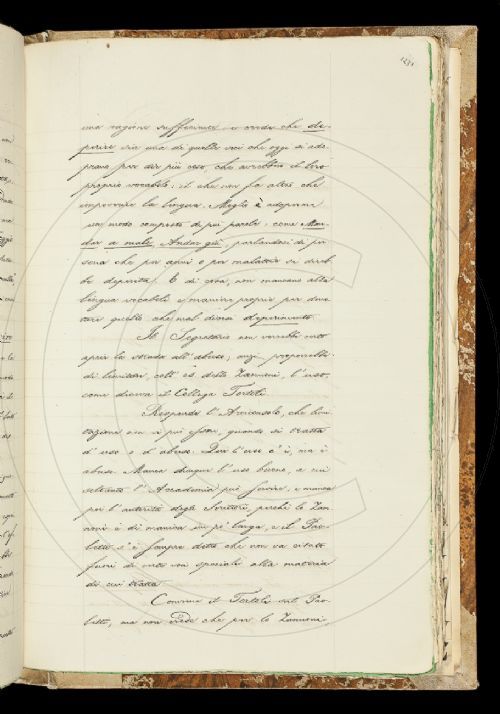 una ragione sufficiente e crede che de-
perire sia una di quelle voci che oggi si ado-
prano per dir più cose, che avrebbero il loro
proprio vocabolo; il che non fa altro che
impoverire la lingua. Meglio è adoprare
un modo composto di più parole, come Man-
dar a male, Andar giù, parlandosi di per-
sona che per anni o per malattia si direb-
be deperita. E di cose, non mancano alla
lingua vocaboli e maniere proprie per
quello che mal dicesi deperimento.
Il Segretario non vorrebbe
aprir la strada all'abuso; anzi
di limitar, coll'es. dello Zannoni, l'uso,
come diceva il Collega Tortoli.
Risponde l'Arciconsolo, che limi-
tazione non vi può essere, quando si tratta
d'uso o d'abuso. Qui l'uso c'è, ma è
abuso. Manca dunque l'uso buono, a cui
soltanto l'Accademia può servire, e manca
poi l'autorità degli Scrittori, perché lo Zan-
noni è di manica un po' larga, e il Pao-
letti s'è sempre detto che non va citato
fuori di voci non speciali alla materia
di cui tratta.
Conviene il Tortoli sul Pao-
letti, ma non vede che per lo Zannoni,